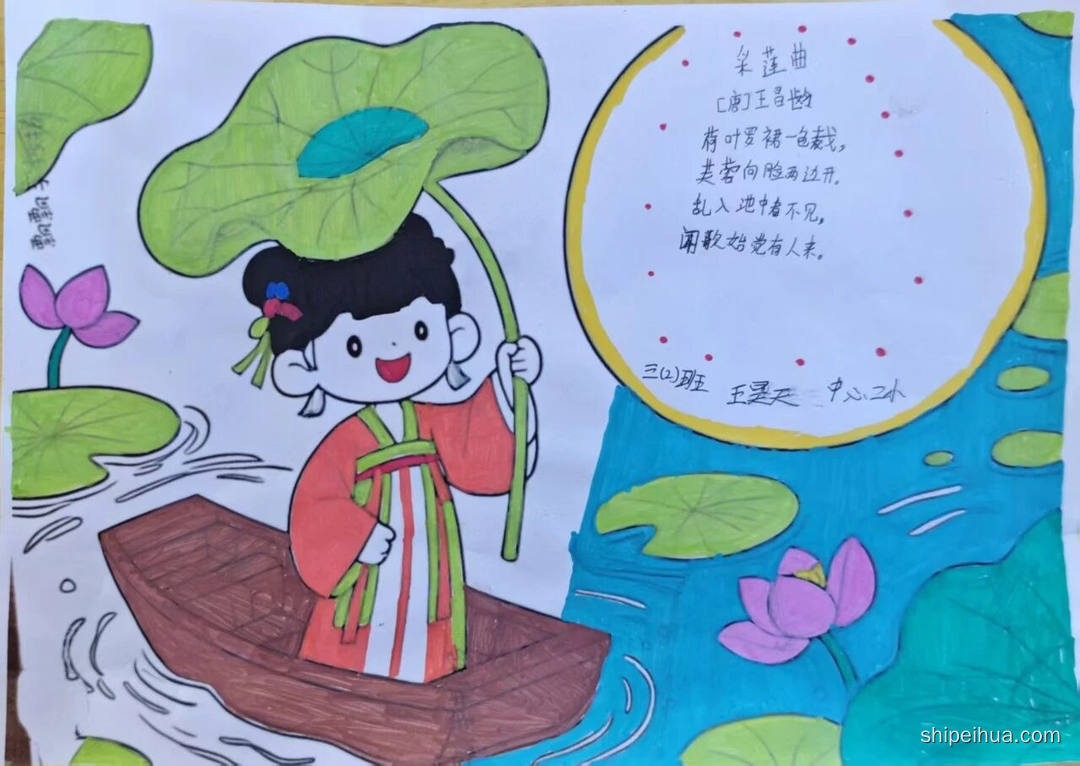 采莲曲
[唐]王昌龄
荷叶罗裙一色裁,
芙蓉向脸两边开。
乱入池中看不见,
闻歌始觉有人来。
三(2)班 王昊天 中心小
飘飘
shipeihua.com